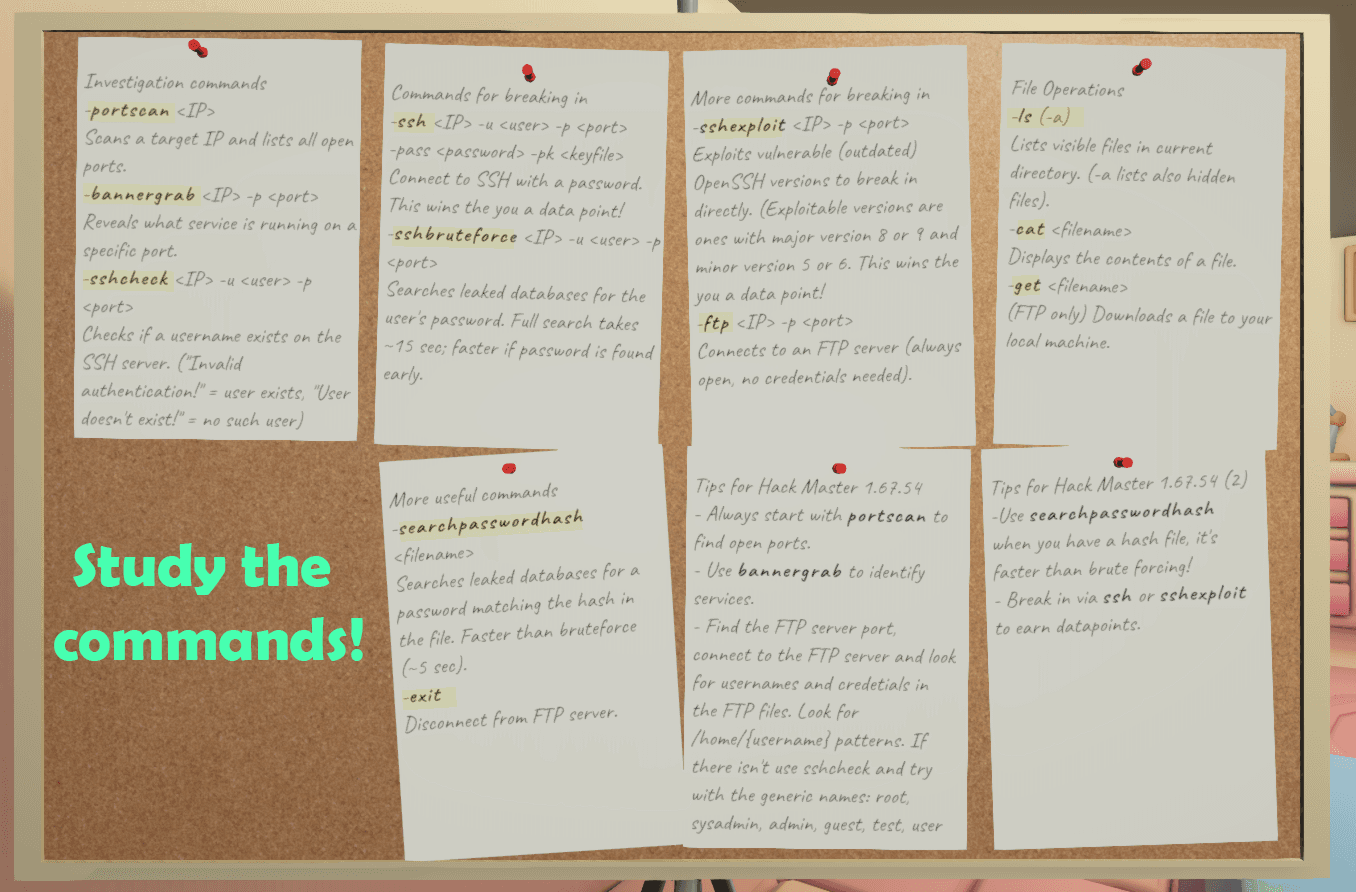 Investigation commands
-portscan <IP>
Scans a target IP and lists all open
ports.
-bannergrab <IP> -p <port>
Reveals what service is running on a
specific port.
-sshcheck <IP> -u <user> -p
<port>
Checks if a username exists on the
SSH server. ("Invalid
authentication!" = user exists, "User
doesn't exist!" = no such user)
Commands for breaking in
-ssh <IP> -u <user> -p <port>
-pass <password> -pk <keyfile>
Connect to SSH with a password.
This wins the you a data point!
-sshbruteforce <IP> -u <user> -p
<port>
Searches leaked databases for the
user's password. Full search takes
~15 sec; faster if password is found
early.
More commands for breaking in
-sshexploit <IP> -p <port>
Exploits vulnerable (outdated)
OpenSSH versions to break in
directly. (Exploitable versions are
ones with major version 8 or 9 and
minor version 5 or 6. This wins the
you a data point!
-ftp <IP> -p <port>
Connects to an FTP server (always
open, no credentials needed).
File Operations
-ls (-a)
Lists visible files in current
directory. (-a lists also hidden
files).
-cat <filename>
Displays the contents of a file.
-get <filename>
(FTP only) Downloads a file to your
local machine.
Study the
commands!
More useful commands
-searchpasswordhash
<filename>
Searches leaked databases for a
password matching the hash in
the file. Faster than bruteforce
(~5 sec).
-exit
Disconnect from FTP server.
Tips for Hack Master 1.67.54
- Always start with portscan to
find open ports.
- Use bannergrab to identify
services.
- Find the FTP server port,
connect to the FTP server and look
for usernames and credetials in
the FTP files. Look for
/home/{username} patterns. If
there isn't use sshcheck and try
with the generic names: root,
sysadmin, admin, guest, test, user
Tips for Hack Master 1.67.54 (2)
-Use searchpasswordhash
when you have a hash file, it's
faster than brute forcing!
- Break in via ssh or sshexploit
to earn datapoints.